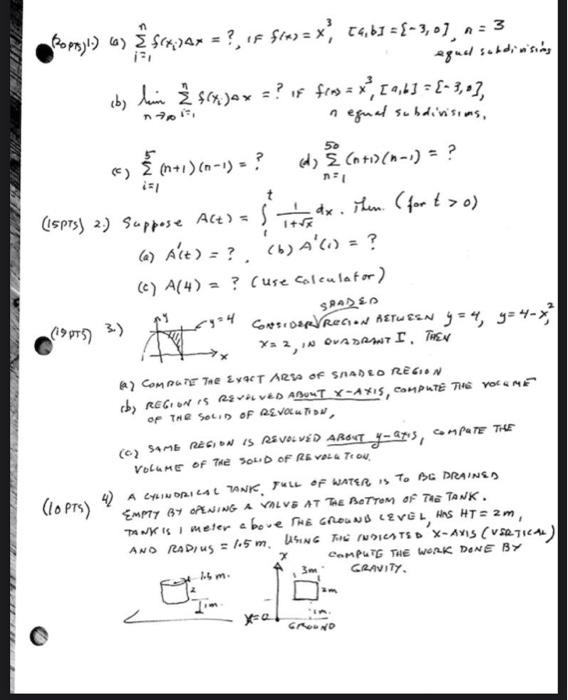 (20 pts) 1.) (a) n Σ i=1 f(xᵢ)Δx = ?, IF f(x) = x³, [a,b] = [-3,0], n = 3
equal subdivisions
(b) lim n→∞ n Σ i=1 f(xᵢ)Δx = ? IF f(x) = x³, [a,b] = [-3,0],
n equal subdivisions.
(c) 5 Σ i=1 (n+1)(n-1) = ? (d) 50 Σ n=1 (n+1)(n-1) = ?
(15PTS) 2.) Suppose A(t) = ∫ 1 t 1/(1+√x) dx. Then (for t > 0)
(a) A'(t) = ?, (b) A'(1) = ?
(c) A(4) = ? (use calculator)
(15PTS) 3.) y y=4 x CONSIDER SHADED REGION BETWEEN y = 4, y = 4-x²,
x = 2, IN QUADRANT I. THEN
(a) COMPUTE THE EXACT AREA OF SHADED REGION
(b) REGION IS REVOLVED ABOUT X-AXIS, COMPUTE THE VOLUME
OF THE SOLID OF REVOLUTION,
(c) SAME REGION IS REVOLVED ABOUT y-axis, COMPUTE THE
VOLUME OF THE SOLID OF REVOLUTION.
(10PTS) 4) A CYLINDRICAL TANK, FULL OF WATER IS TO BE DRAINED
EMPTY BY OPENING A VALVE AT THE BOTTOM OF THE TANK.
TANK IS 1 meter above THE GROUND LEVEL, HAS HT = 2m,
AND RADIUS = 1.5 m. USING THE INDICATED X-AXIS (VERTICAL)
COMPUTE THE WORK DONE BY
GRAVITY.
1.5 m. 2 1m
x 3m 2m 1m. X=0 GROUND